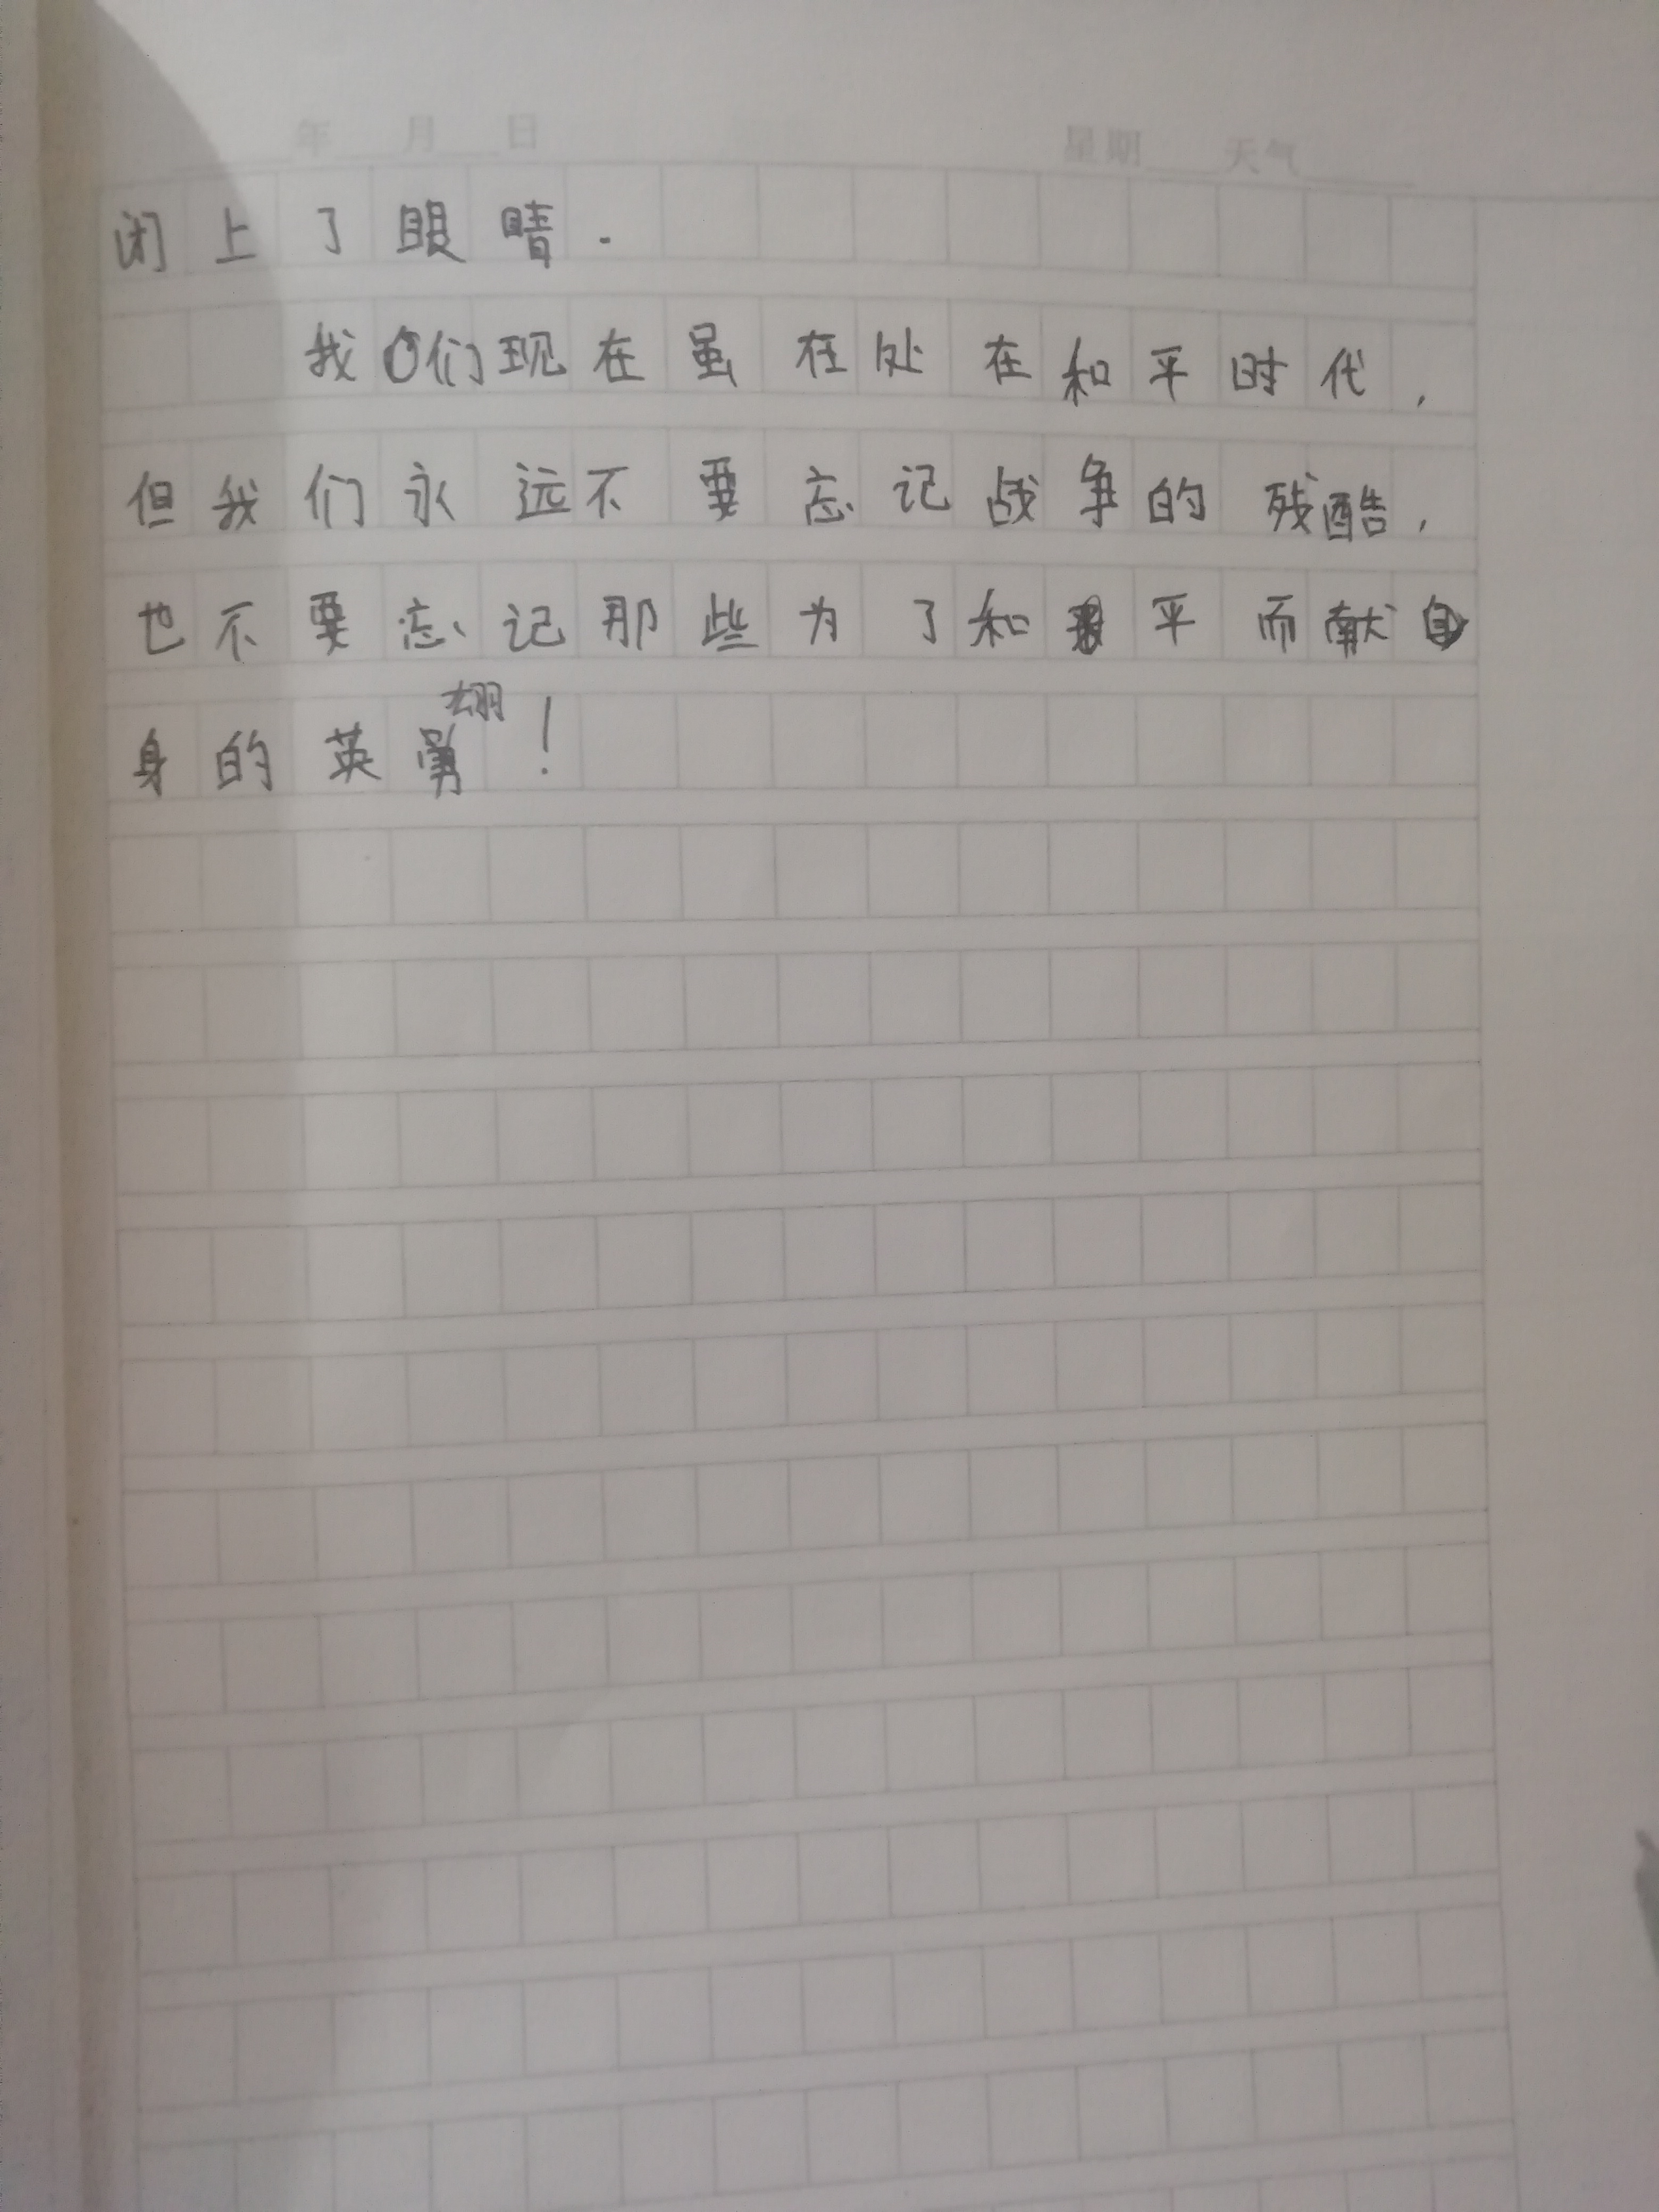 年 月 日 星期 天气
闭上了眼睛.
我们现在虽在处在和平时代,
但我们永远不要忘记战争的残酷,
也不要忘记那些为了和平而献
身的英!